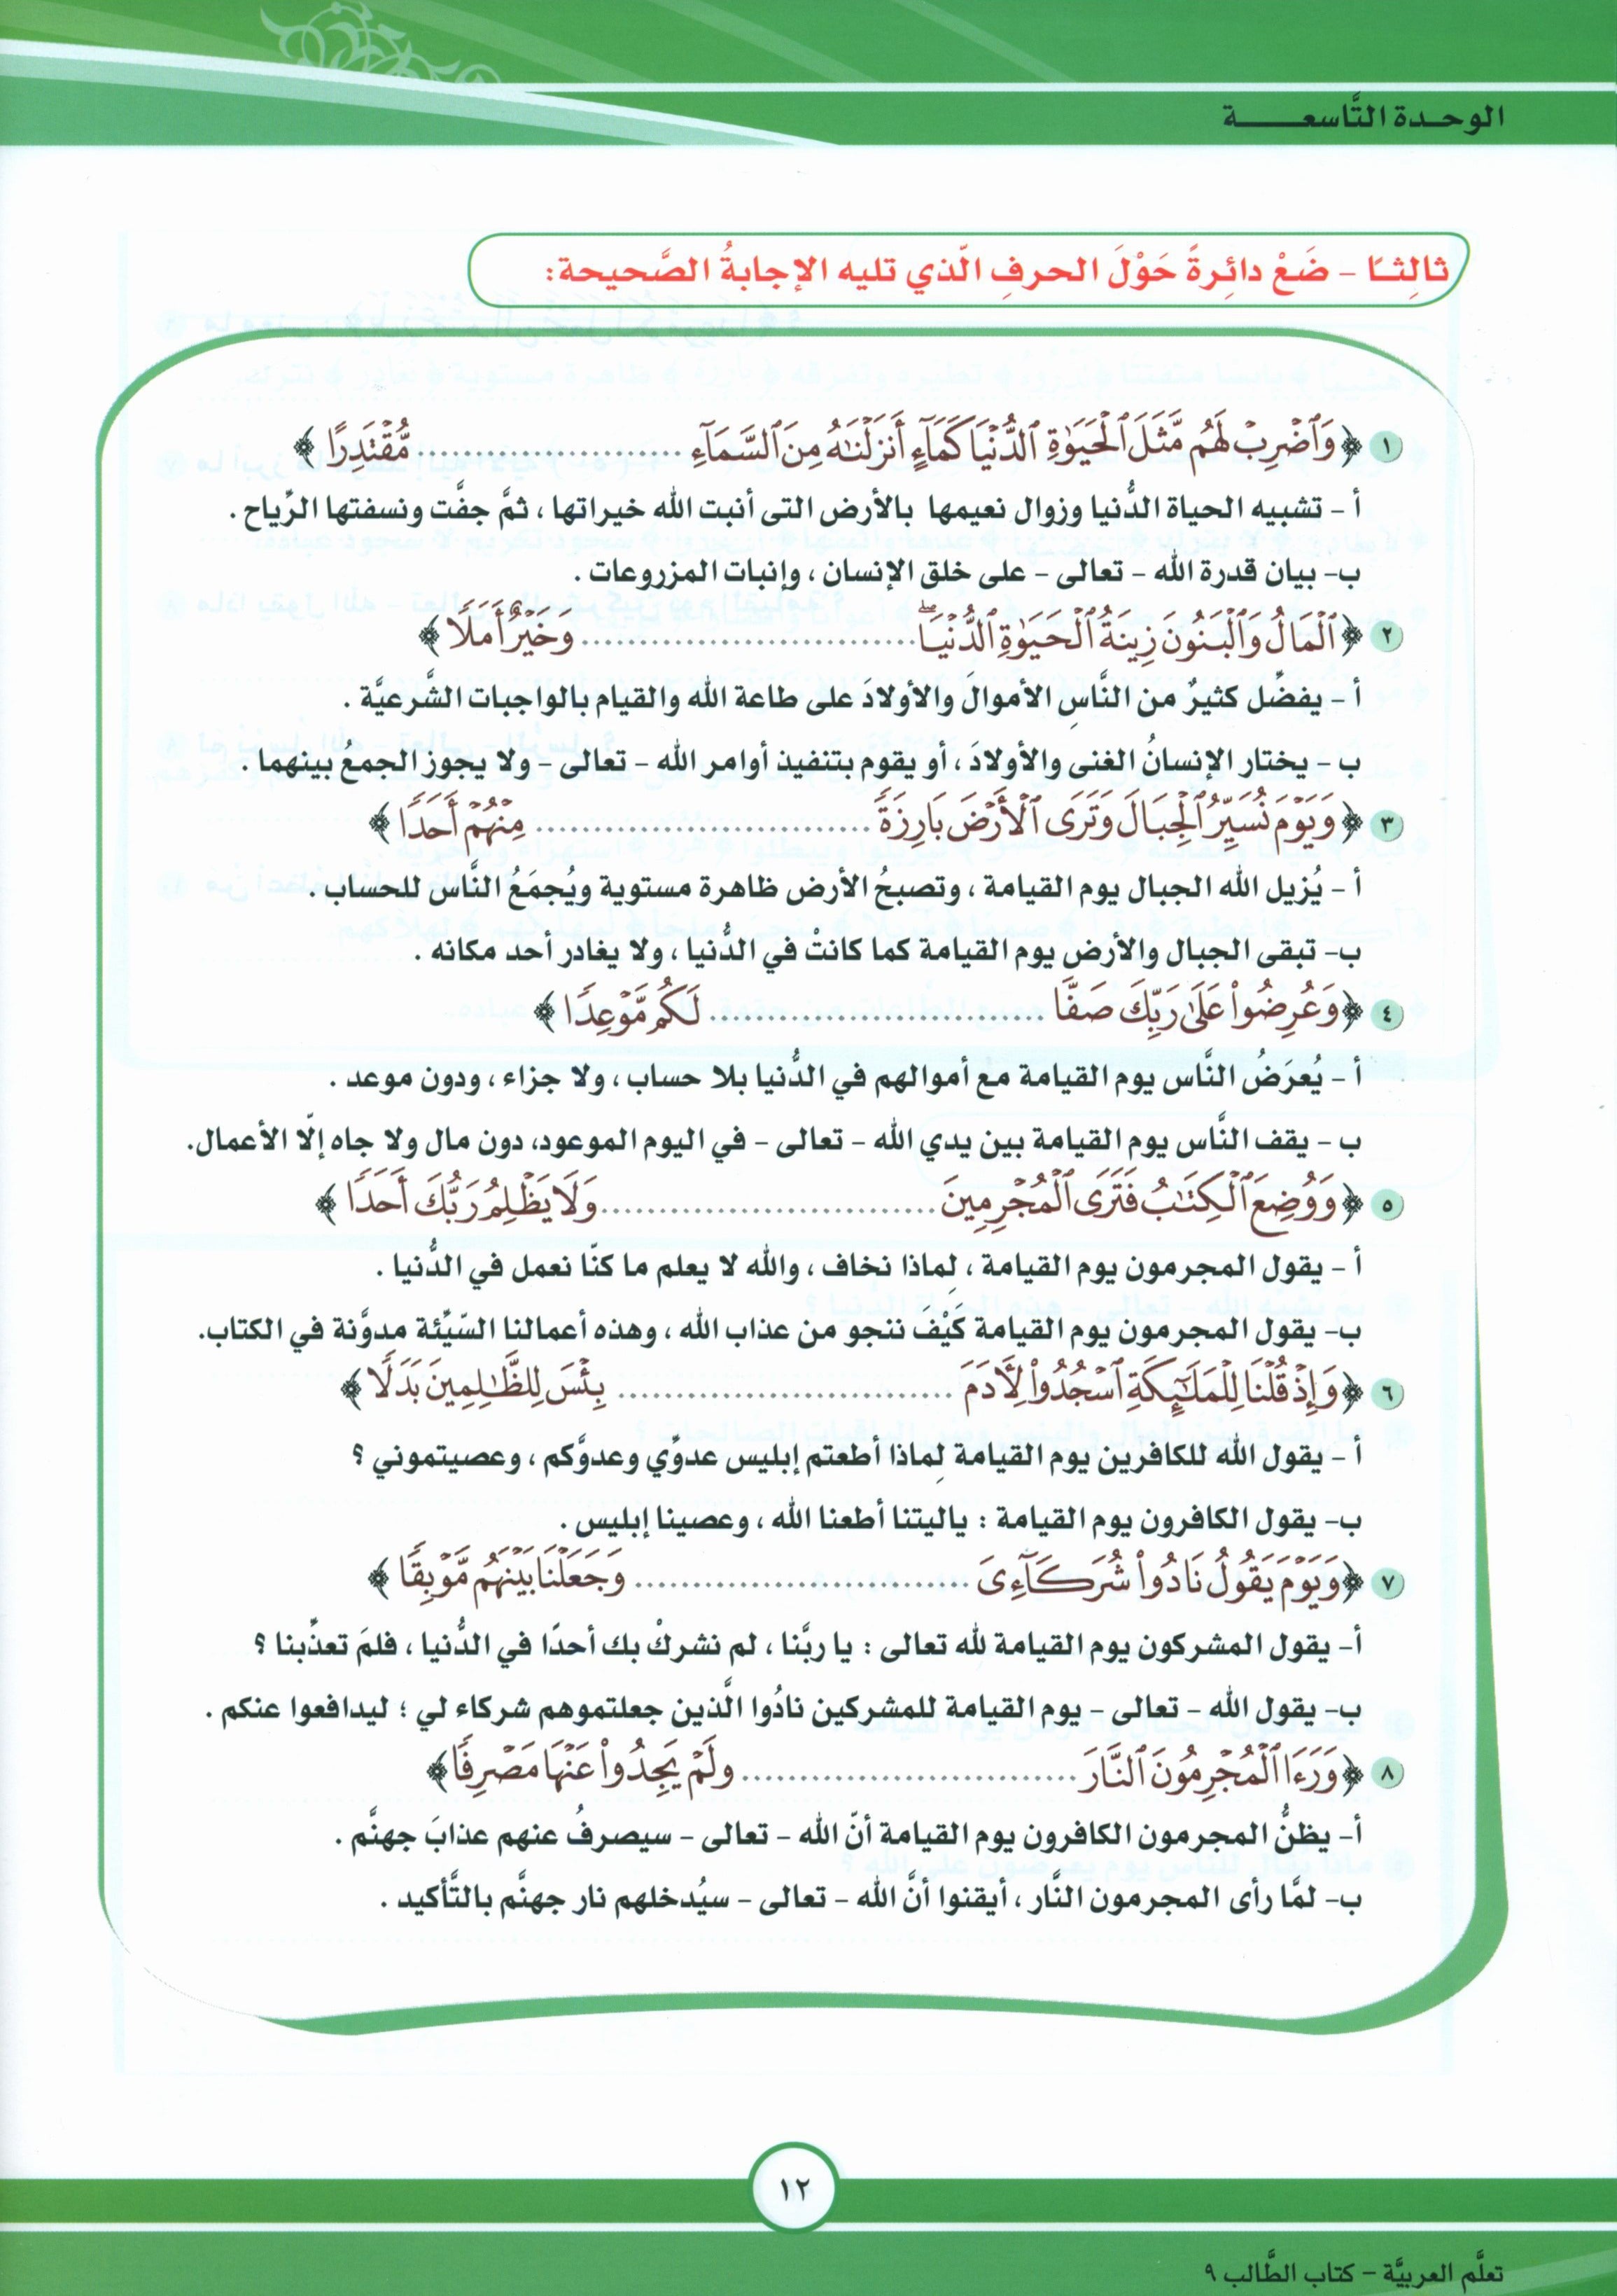 الوحـدة التَّاسعـــــة
ثالِثـًا - ضَعْ دائِرةً حَوْلَ الحرفِ الّذي تليه الإجابةُ الصَّحيحة:
١ ﴿ وَٱضْرِبْ لَهُم مَّثَلَ ٱلْحَيَوٰةِ ٱلدُّنْيَا كَمَآءٍ أَنزَلْنَٰهُ مِنَ ٱلسَّمَآءِ .......................... مُّقْتَدِرًا ﴾
أ - تشبيه الحياة الدُّنيا وزوال نعيمها بالأرض التى أنبت الله خيراتها ، ثمَّ جفَّت ونسفتها الرِّياح .
ب- بيان قدرة الله - تعالى - على خلق الإنسان ، وإنبات المزروعات .
٢ ﴿ ٱلْمَالُ وَٱلْبَنُونَ زِينَةُ ٱلْحَيَوٰةِ ٱلدُّنْيَا ۖ ................................ وَخَيْرٌ أَمَلًا ﴾
أ - يفضِّل كثيرٌ من النَّاسِ الأموالَ والأولادَ على طاعة الله والقيام بالواجبات الشَّرعيَّة .
ب - يختار الإنسانُ الغنى والأولادَ ، أو يقوم بتنفيذ أوامر الله - تعالى - ولا يجوز الجمعُ بينهما .
٣ ﴿ وَيَوْمَ نُسَيِّرُ ٱلْجِبَالَ وَتَرَى ٱلْأَرْضَ بَارِزَةً ................................ مِنْهُمْ أَحَدًا ﴾
أ - يُزيل الله الجبال يوم القيامة ، وتصبحُ الأرض ظاهرة مستوية ويُجمَعُ النَّاس للحساب .
ب- تبقى الجبال والأرض يوم القيامة كما كانتْ في الدُّنيا ، ولا يغادر أحد مكانه .
٤ ﴿ وَعُرِضُوا۟ عَلَىٰ رَبِّكَ صَفًّا ................................ لَكُم مَّوْعِدًا ﴾
أ - يُعرَضُ النَّاس يوم القيامة مع أموالهم في الدُّنيا بلا حساب ، ولا جزاء ، ودون موعد .
ب - يقف النَّاس يوم القيامة بين يدي الله - تعالى - في اليوم الموعود، دون مال ولا جاه إلّا الأعمال.
٥ ﴿ وَوُضِعَ ٱلْكِتَٰبُ فَتَرَى ٱلْمُجْرِمِينَ ................................ وَلَا يَظْلِمُ رَبُّكَ أَحَدًا ﴾
أ - يقول المجرمون يوم القيامة ، لِماذا نخاف ، والله لا يعلم ما كنّا نعمل في الدُّنيا .
ب- يقول المجرمون يوم القيامة كَيْفَ ننجو من عذاب الله ، وهذه أعمالنا السّيِّئة مدوَّنة في الكتاب.
٦ ﴿ وَإِذْ قُلْنَا لِلْمَلَٰٓئِكَةِ ٱسْجُدُوا۟ لِءَادَمَ ................................ بِئْسَ لِلظَّٰلِمِينَ بَدَلًا ﴾
أ - يقول الله للكافرين يوم القيامة لِماذا أطعتم إبليس عدوِّي وعدوَّكم ، وعصيتموني ؟
ب- يقول الكافرون يوم القيامة : ياليتنا أطعنا الله ، وعصينا إبليس .
٧ ﴿ وَيَوْمَ يَقُولُ نَادُوا۟ شُرَكَآءِىَ ................................ وَجَعَلْنَا بَيْنَهُم مَّوْبِقًا ﴾
أ- يقول المشركون يوم القيامة لله تعالى : يا ربَّنا ، لم نشركْ بك أحدًا في الدُّنيا ، فلمَ تعذِّبنا ؟
ب- يقول الله - تعالى - يوم القيامة للمشركين نادُوا الَّذين جعلتموهم شركاء لي ؛ ليدافعوا عنكم .
٨ ﴿ وَرَءَا ٱلْمُجْرِمُونَ ٱلنَّارَ ................................ ولَمْ يَجِدُوا۟ عَنْهَا مَصْرِفًا ﴾
أ- يظنُّ المجرمون الكافرون يوم القيامة أنّ الله - تعالى - سيصرفُ عنهم عذابَ جهنَّم .
ب- لمَّا رأى المجرمون النَّار ، أيقنوا أنَّ الله - تعالى - سيُدخلهم نار جهنَّم بالتَّأكيد .
١٢
تعلَّم العربيَّة - كتاب الطَّالب ٩